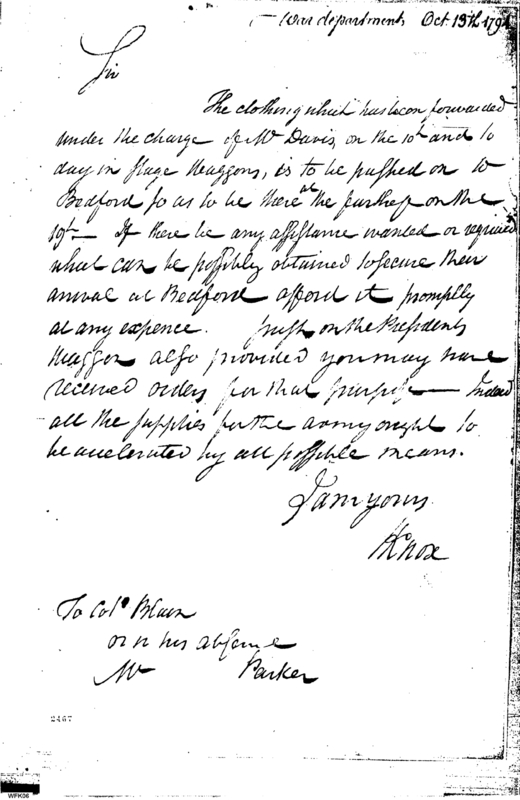 War department Oct 13th 1794
Sir
The clothing which has been forwarded
under the charge of Mr Davis, on the 10th and to
day in stage Waggons, is to be pushed on to
Bedford so as to be there at the furthest on the
19th— If there be any assistance wanted or required
which can be possibly obtained to secure their
arrival at Bedford afford it promptly
at any expence. push on the Presidents
Waggon also provided you may have
received orders for that purpose— Indeed
all the supplies for the army ought to
be accelerated by all possible means.
I am yours
HKnox
To Colo Blain
or in his absence
Mr Parker
2467
WFK06